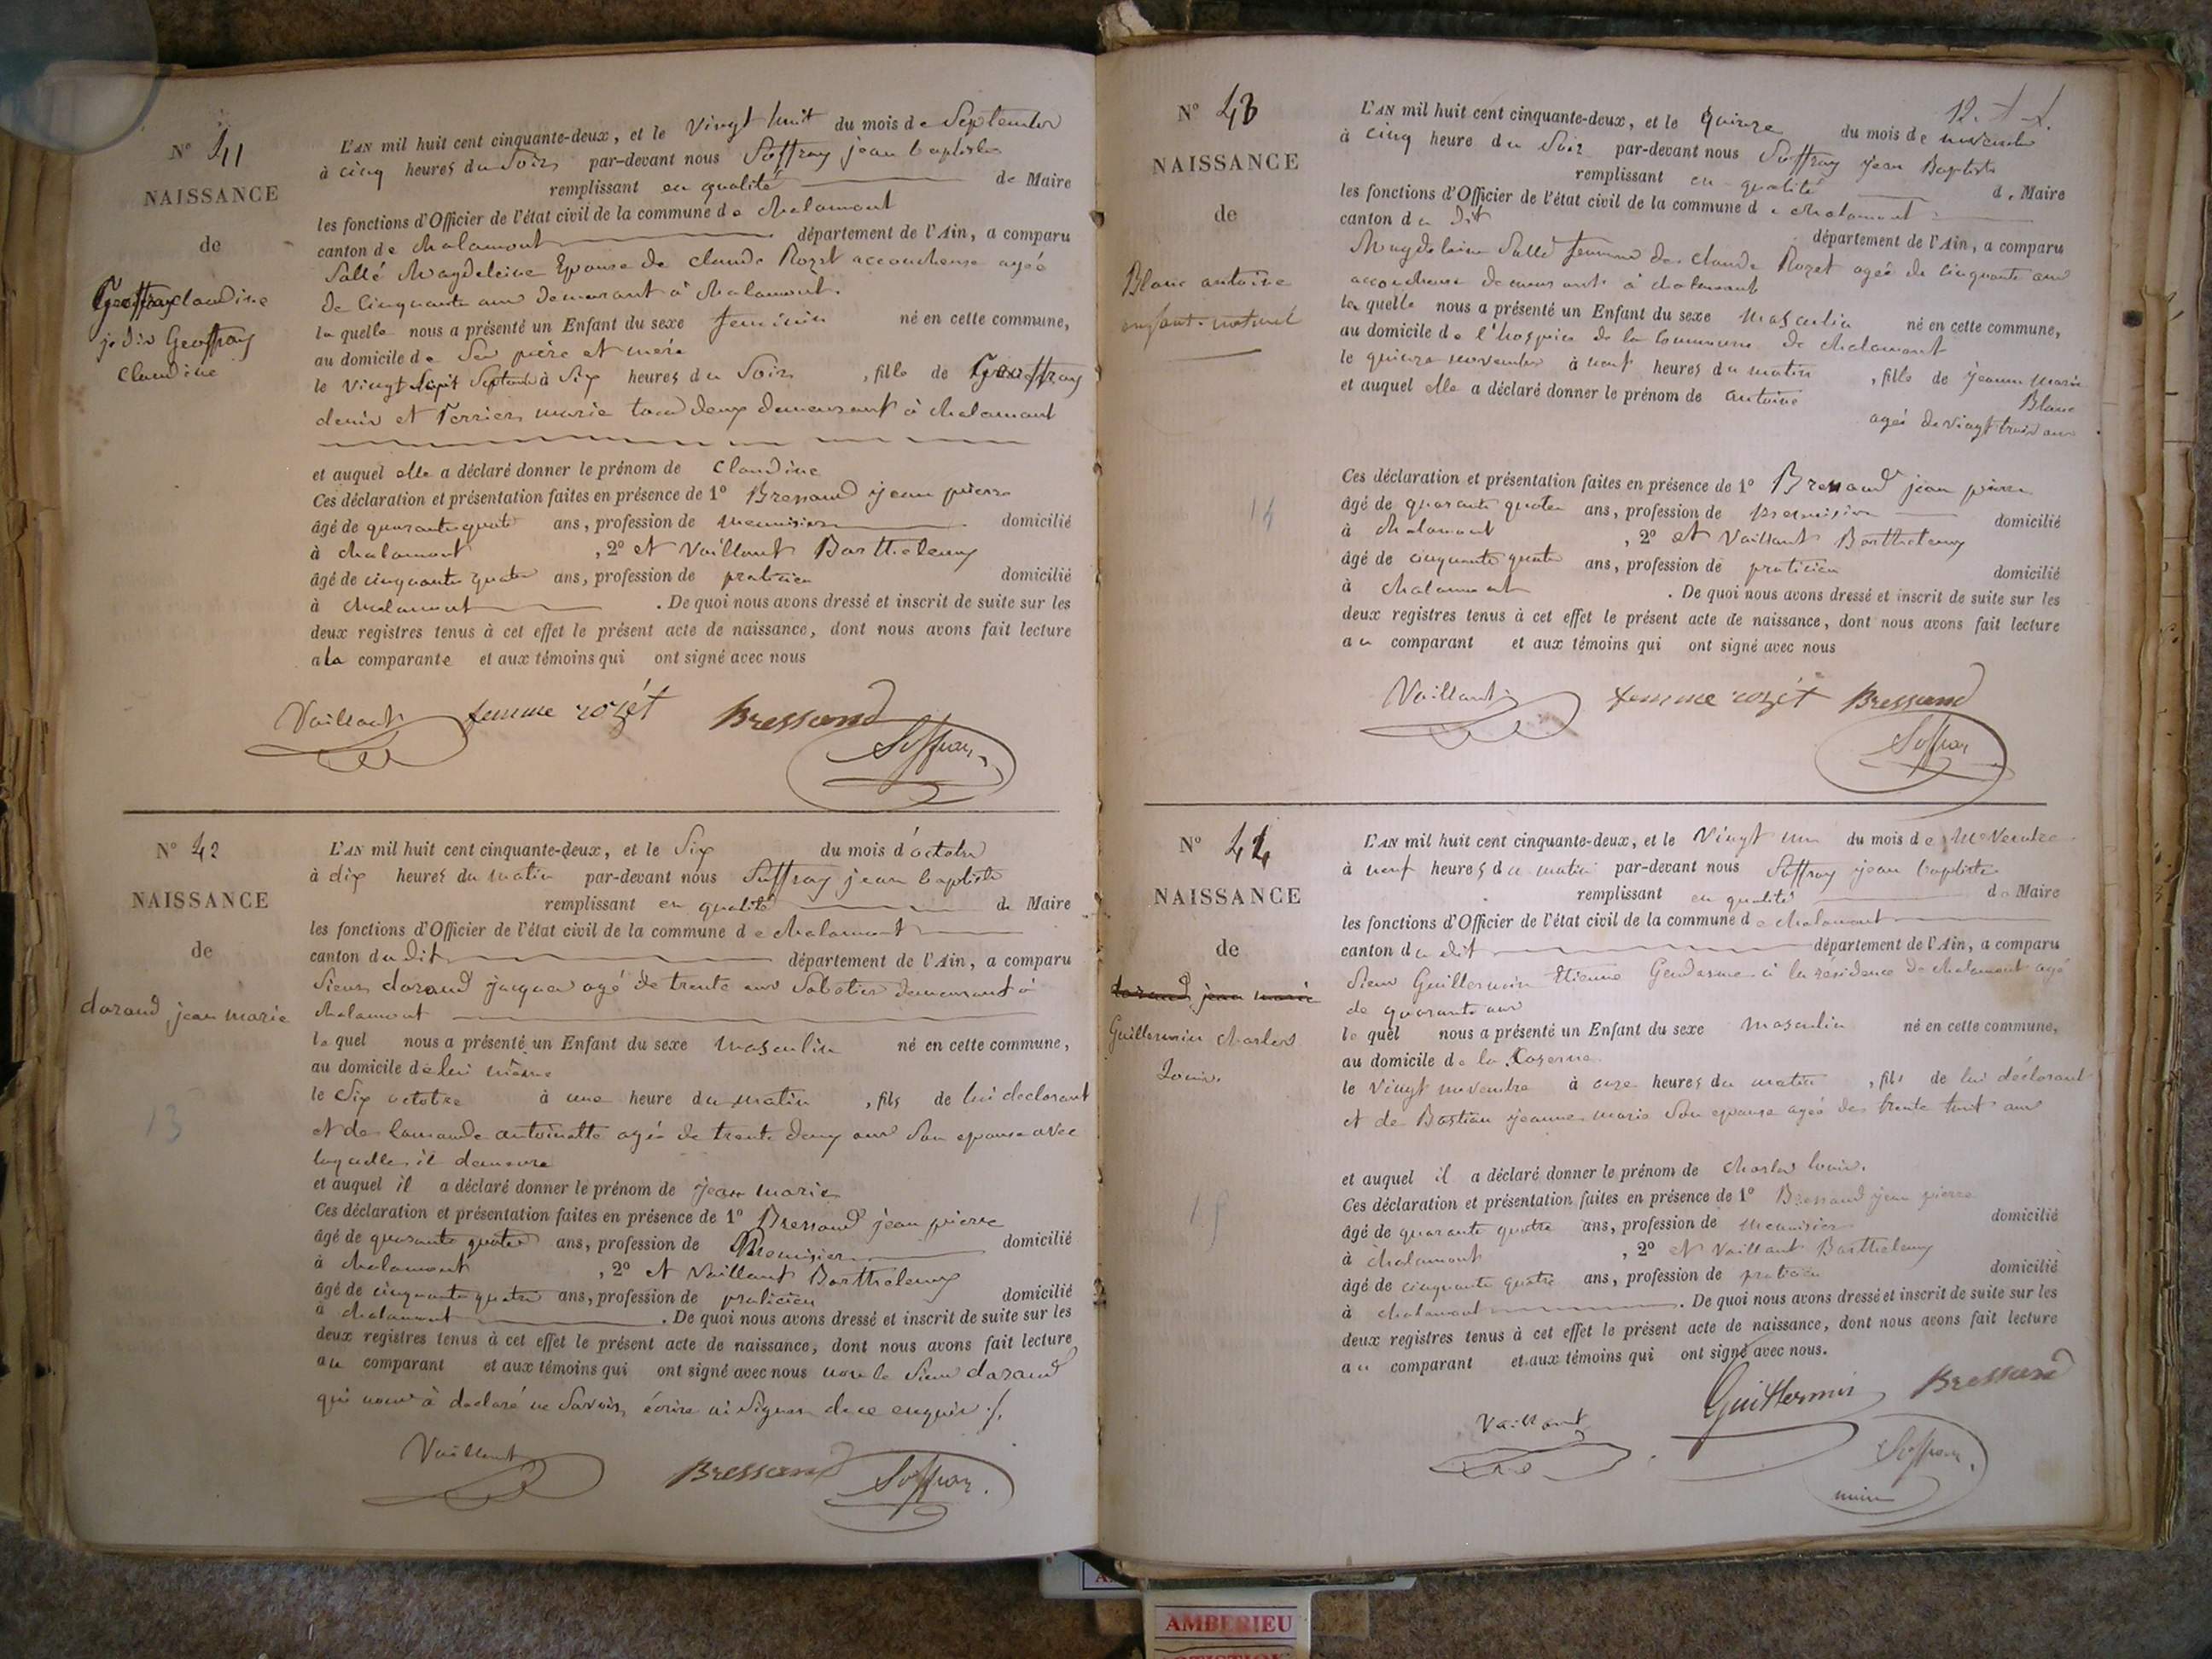 N° 41
NAISSANCE
de
Geoffray claudine
je dis Geoffray
Claudine
L'AN mil huit cent cinquante-deux, et le Vingt huit du mois de Septembre
à cinq heures du Soir par-devant nous Soffray jean baptiste
remplissant en qualité de Maire
les fonctions d'Officier de l'état civil de la commune de chalamont
canton de chalamont département de l'Ain, a comparu
Sallé Magdeleine Epouse de claude Rozet accoucheuse ageé
de Cinquante ans demeurant à chalamont.
la quelle nous a présenté un Enfant du sexe feminin né en cette commune,
au domicile de Ses père et mère
le Vingt Sept Septembre à Six heures du Soir, fille de Geoffray
denis et Perrier marie tous deux demeurant à chalamont
et auquel elle a déclaré donner le prénom de Claudine
Ces déclaration et présentation faites en présence de 1° Bressand jean pierre
âgé de quarante quatre ans, profession de menuisier domicilié
à chalamont, 2° et Vaillant Barthelemy
âgé de cinquante quatre ans, profession de praticien domicilié
à chalamont. De quoi nous avons dressé et inscrit de suite sur les
deux registres tenus à cet effet le présent acte de naissance, dont nous avons fait lecture
a la comparante et aux témoins qui ont signé avec nous
Vaillant femme rozét Bressand
Soffray
N° 42
NAISSANCE
de
darand jean marie
13
L'AN mil huit cent cinquante-deux, et le Six du mois d'octobre
à dix heures du matin par-devant nous Soffray jean baptiste
remplissant en qualité de Maire
les fonctions d'Officier de l'état civil de la commune de chalamont
canton du dit département de l'Ain, a comparu
Sieur darand jacques agé de trente ans Sabotier demeurant à
chalamont
le quel nous a présenté un Enfant du sexe masculin né en cette commune,
au domicile de lui même
le Six octobre à une heure du matin, fils de lui declarant
et de antoinette agée de trente deux ans Son epouse avec
laquelle il demeure
et auquel il a déclaré donner le prénom de jean marie
Ces déclaration et présentation faites en présence de 1° Bressand jean pierre
âgé de quarante quatre ans, profession de Menuisier domicilié
à chalamont, 2° et Vaillant Barthelemy
âgé de cinquante quatre ans, profession de praticien domicilié
à chalamont. De quoi nous avons dressé et inscrit de suite sur les
deux registres tenus à cet effet le présent acte de naissance, dont nous avons fait lecture
au comparant et aux témoins qui ont signé avec nous non le Sieur darand
qui nous à declaré ne Savoir écrire ni Signer de ce enquis
Vaillant Bressand Soffray
N° 43
NAISSANCE
de
Blanc antoine
enfant naturel
14
L'AN mil huit cent cinquante-deux, et le quinze du mois de novembre
à cinq heure du Soir par-devant nous Soffray jean Baptiste
remplissant en qualité de Maire
les fonctions d'Officier de l'état civil de la commune de chalamont
canton du dit département de l'Ain, a comparu
Magdeleine Sallé femme de claude Rozet ageé de cinquante ans
accoucheuse demeurante à chalamont
la quelle nous a présenté un Enfant du sexe masculin né en cette commune,
au domicile de l'hospice de la Commune de chalamont
le quinze novembre à neuf heures du matin, fille de jeanne marie
Blanc
et auquel elle a déclaré donner le prénom de antoine
ageé de vingt trois ans
Ces déclaration et présentation faites en présence de 1° Bressand jean pierre
âgé de quarante quatre ans, profession de menuisier domicilié
à chalamont, 2° et Vaillant Barthelemy
âgé de cinquante quatre ans, profession de praticien domicilié
à chalamont. De quoi nous avons dressé et inscrit de suite sur les
deux registres tenus à cet effet le présent acte de naissance, dont nous avons fait lecture
au comparant et aux témoins qui ont signé avec nous
Vaillant femme rozét Bressand
Soffray
N° 44
NAISSANCE
de
darand jean marie
Guillermin charles
Louis.
L'AN mil huit cent cinquante-deux, et le Vingt un du mois de Novembre
à neuf heures du matin par-devant nous Soffray jean baptiste
remplissant en qualité de Maire
les fonctions d'Officier de l'état civil de la commune de chalamont
canton du dit département de l'Ain, a comparu
Sieur Guillermin Etienne Gendarme à la residence de chalamont agé
de quarante ans
le quel nous a présenté un Enfant du sexe masculin né en cette commune,
au domicile de la Caserne
le Vingt novembre à onze heures du matin, fils de lui déclarant
et de Bastian jeanne marie Son epouse ageé de trente huit ans
et auquel il a déclaré donner le prénom de charles louis.
Ces déclaration et présentation faites en présence de 1° Bressand jean pierre
âgé de quarante quatre ans, profession de menuisier domicilié
à chalamont, 2° et Vaillant Barthelemy
âgé de cinquante quatre ans, profession de praticien domicilié
à chalamont. De quoi nous avons dressé et inscrit de suite sur les
deux registres tenus à cet effet le présent acte de naissance, dont nous avons fait lecture
au comparant et aux témoins qui ont signé avec nous.
Vaillant Guillermin Bressand
Soffray
maire
AMBERIEU